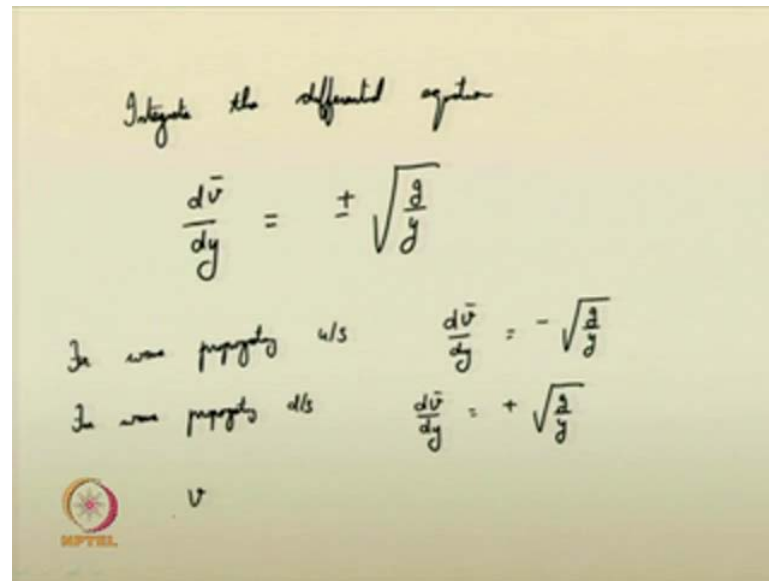 Integrate the differential equation
dv̄/dy = ± √(g/y)
For wave propagating u/s dv̄/dy = - √(g/y)
For wave propagating d/s dv̄/dy = + √(g/y)
v
NPTEL